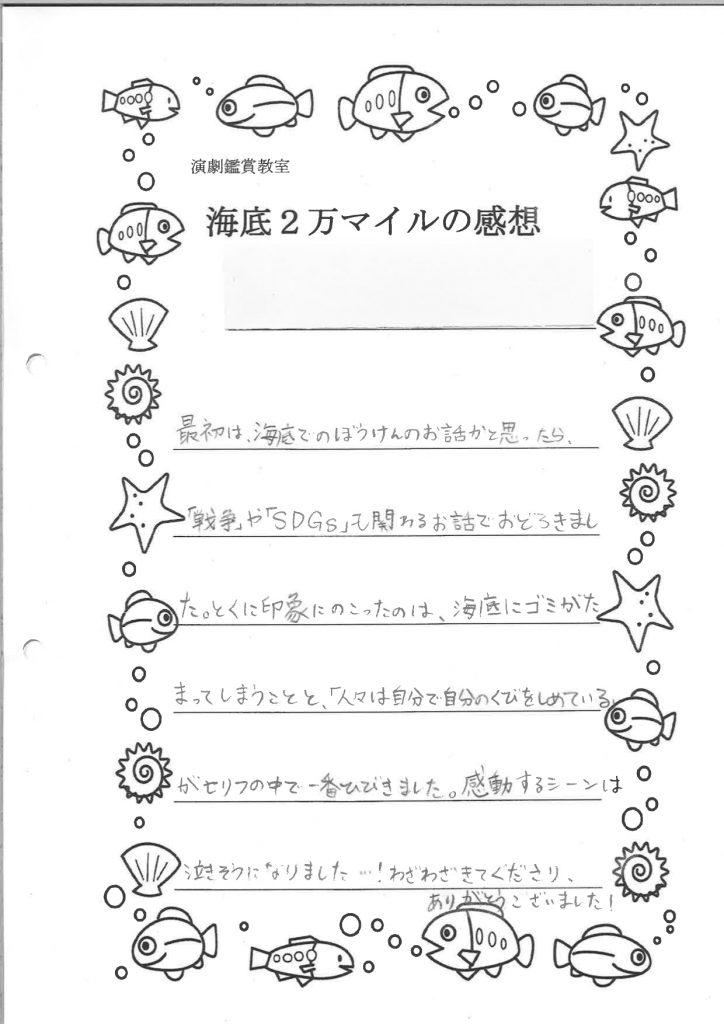 演劇鑑賞教室
海底２万マイルの感想
最初は、海底でのぼうけんのお話かと思ったら、
「戦争」や「SDGs」も関わるお話でおどろきまし
た。とくに印象にのこったのは、海底にゴミがた
まってしまうことと、「人々は自分で自分のくびをしめている」
がセリフの中で一番ひびきました。感動するシーンは
泣きそうになりました…！わざわざきてくださり、
ありがとうございました！